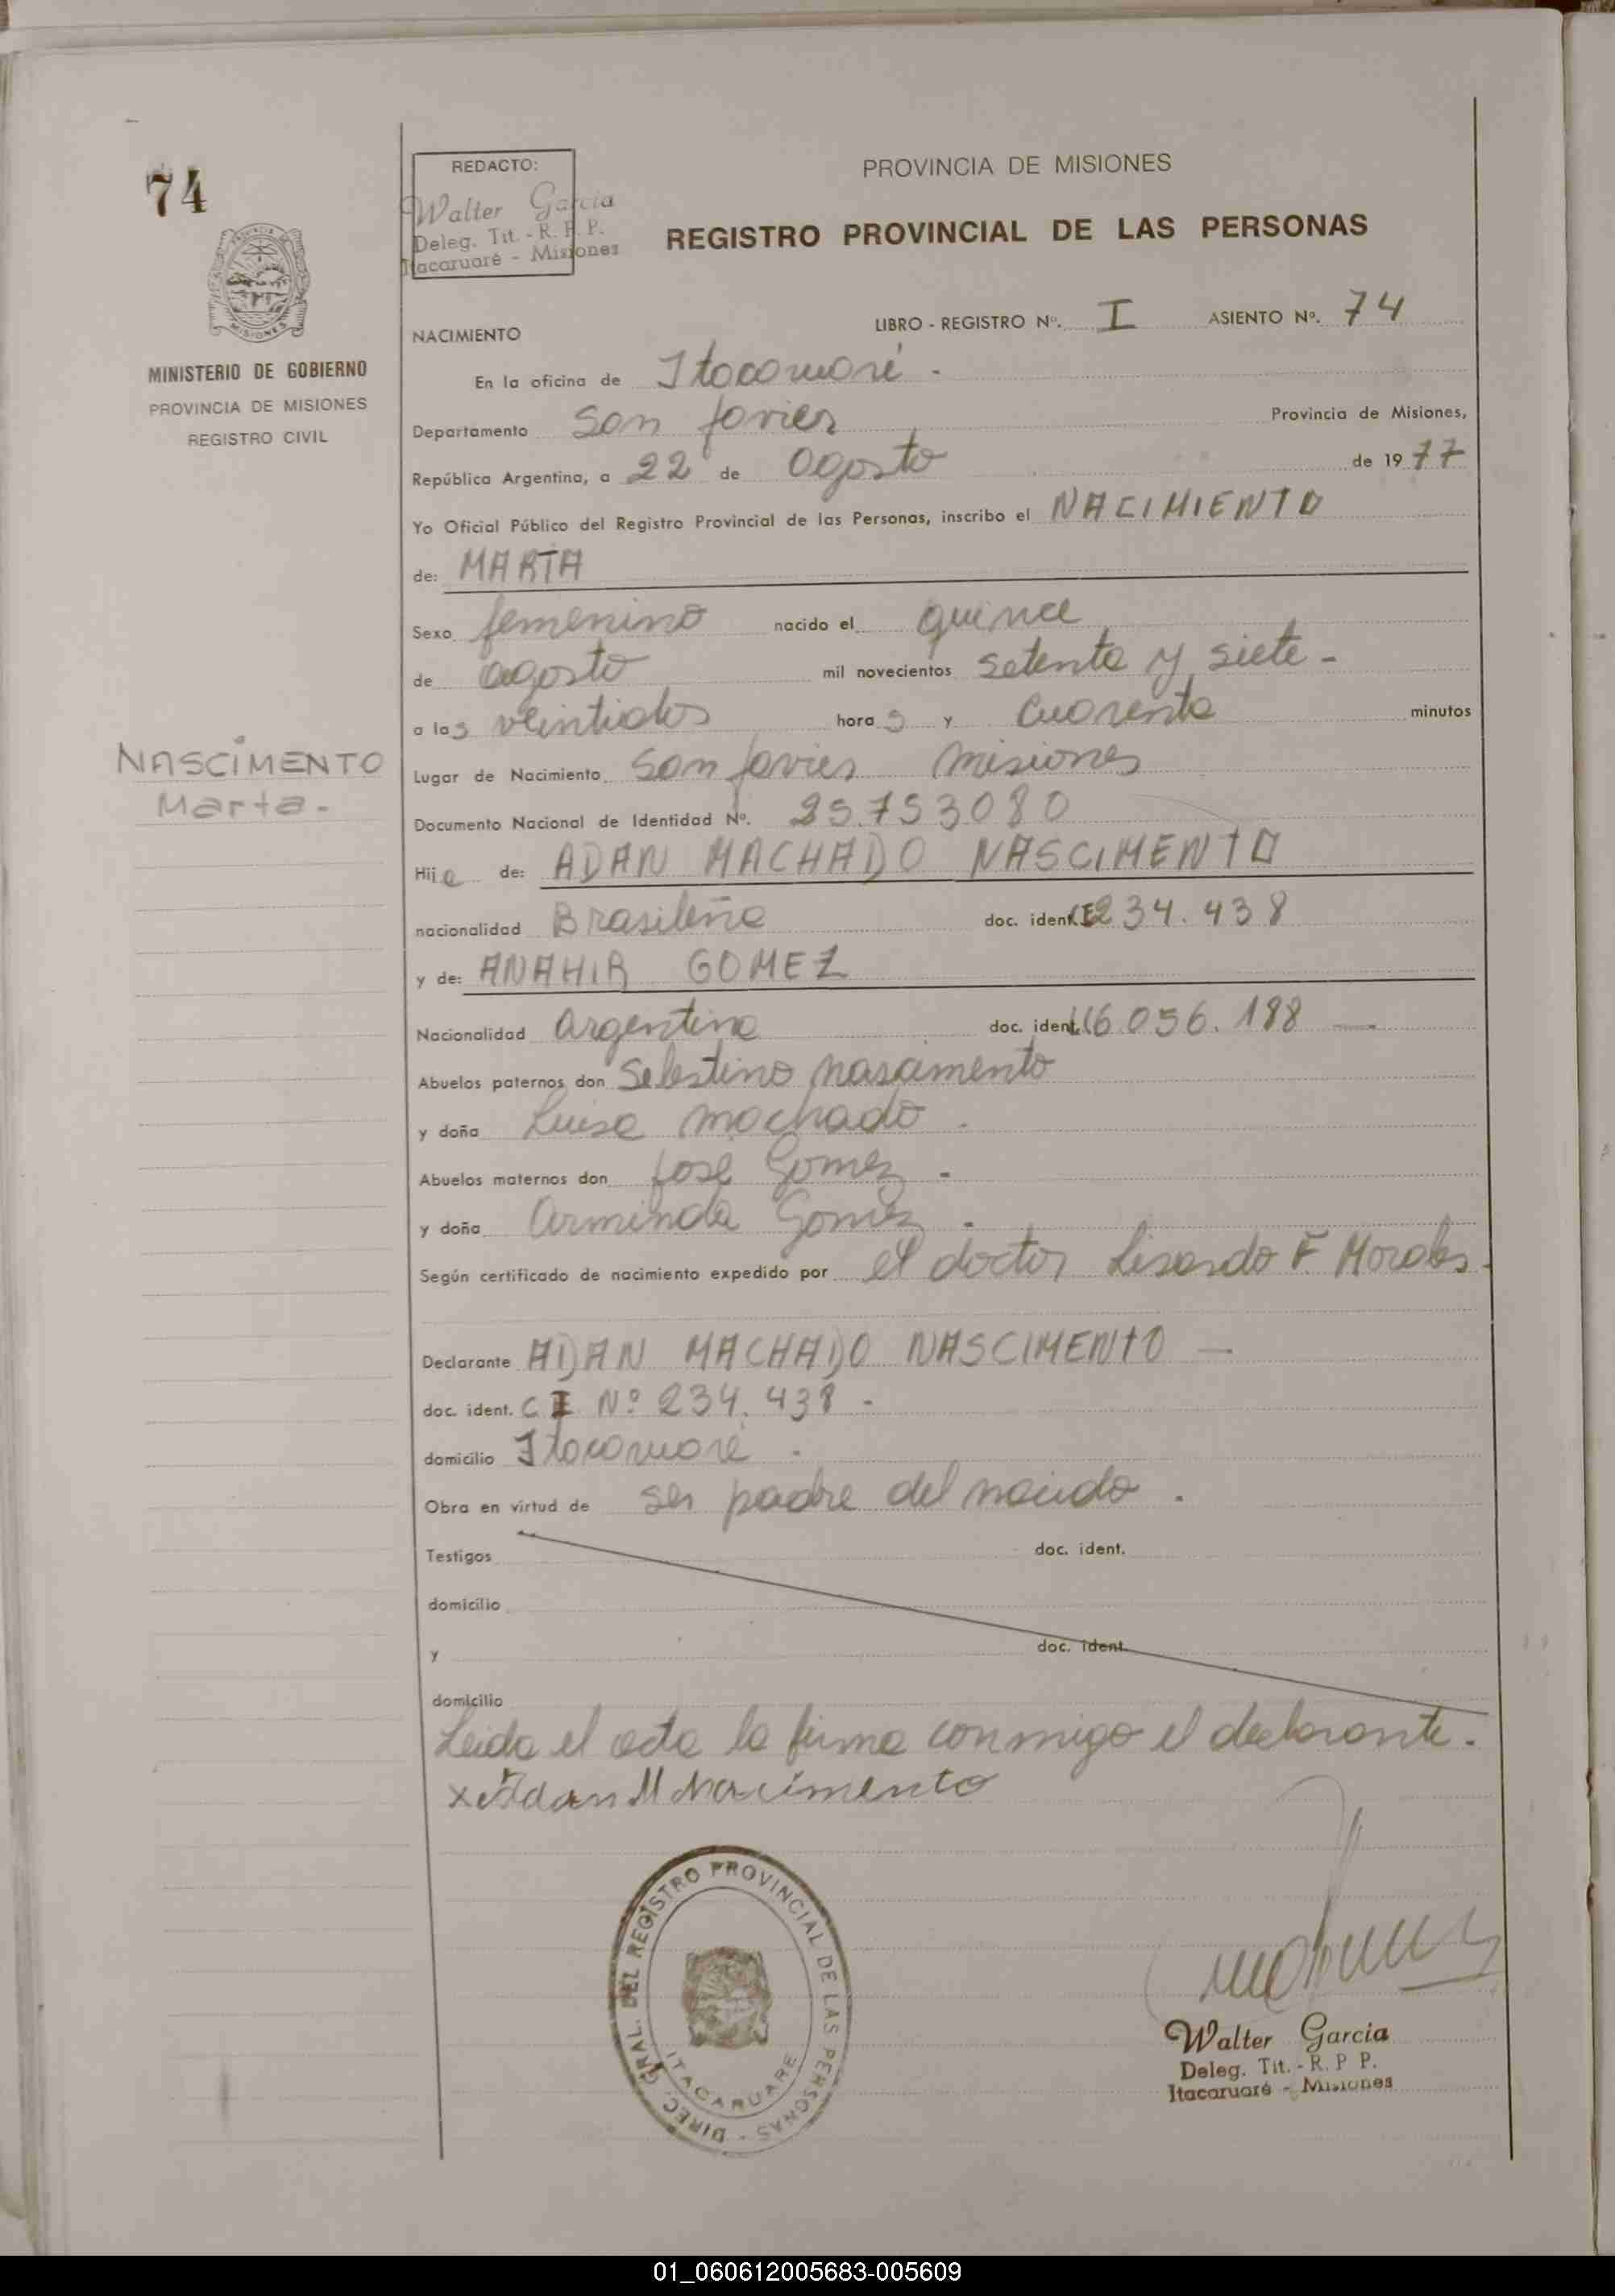 74
PROVINCIA DE MISIONES
MINISTERIO DE GOBIERNO
PROVINCIA DE MISIONES
REGISTRO CIVIL
NASCIMENTO
Marta.-
REDACTO:
Walter Garcia
Deleg. Tit. - R. P. P.
Itacaruaré - Misiones
PROVINCIA DE MISIONES
REGISTRO PROVINCIAL DE LAS PERSONAS
LIBRO - REGISTRO Nº. I ASIENTO Nº. 74
NACIMIENTO
En la oficina de Itacaruaré -
Departamento San Javier Provincia de Misiones,
República Argentina, a 22 de agosto de 1977
Yo Oficial Público del Registro Provincial de las Personas, inscribo el NACIMIENTO
de: MARTA
Sexo femenino nacido el quince
de agosto mil novecientos setenta y siete -
a las veintidos horas y cuarenta minutos
Lugar de Nacimiento San Javier Misiones
Documento Nacional de Identidad Nº. 25.753080
Hija de: ADAN MACHADO NASCIMENTO
nacionalidad Brasileña doc. ident. 234.438
y de: ANAHIR GOMEZ
Nacionalidad argentina doc. ident. 6.056.188 —
Abuelos paternos don Selestino nascimento
y doña Luisa machado .
Abuelos maternos don José Gomez -
y doña Arminda Gomez .
Según certificado de nacimiento expedido por el doctor Lisandro F Morales.
Declarante ADAN MACHADO NASCIMENTO —
doc. ident. C I Nº 234.438 -
domicilio Itacaruaré .
Obra en virtud de ser padre del nacido .
Testigos doc. ident.
domicilio
y doc. ident.
domicilio
Leida el acta la firma conmigo el declarante.
x Adan M Nascimento
DIREC. GRAL. DEL REGISTRO PROVINCIAL DE LAS PERSONAS -
ITACARUARE
Walter Garcia
Deleg. Tit. - R. P P.
Itacaruaré - Misiones
01_060612005683-005609